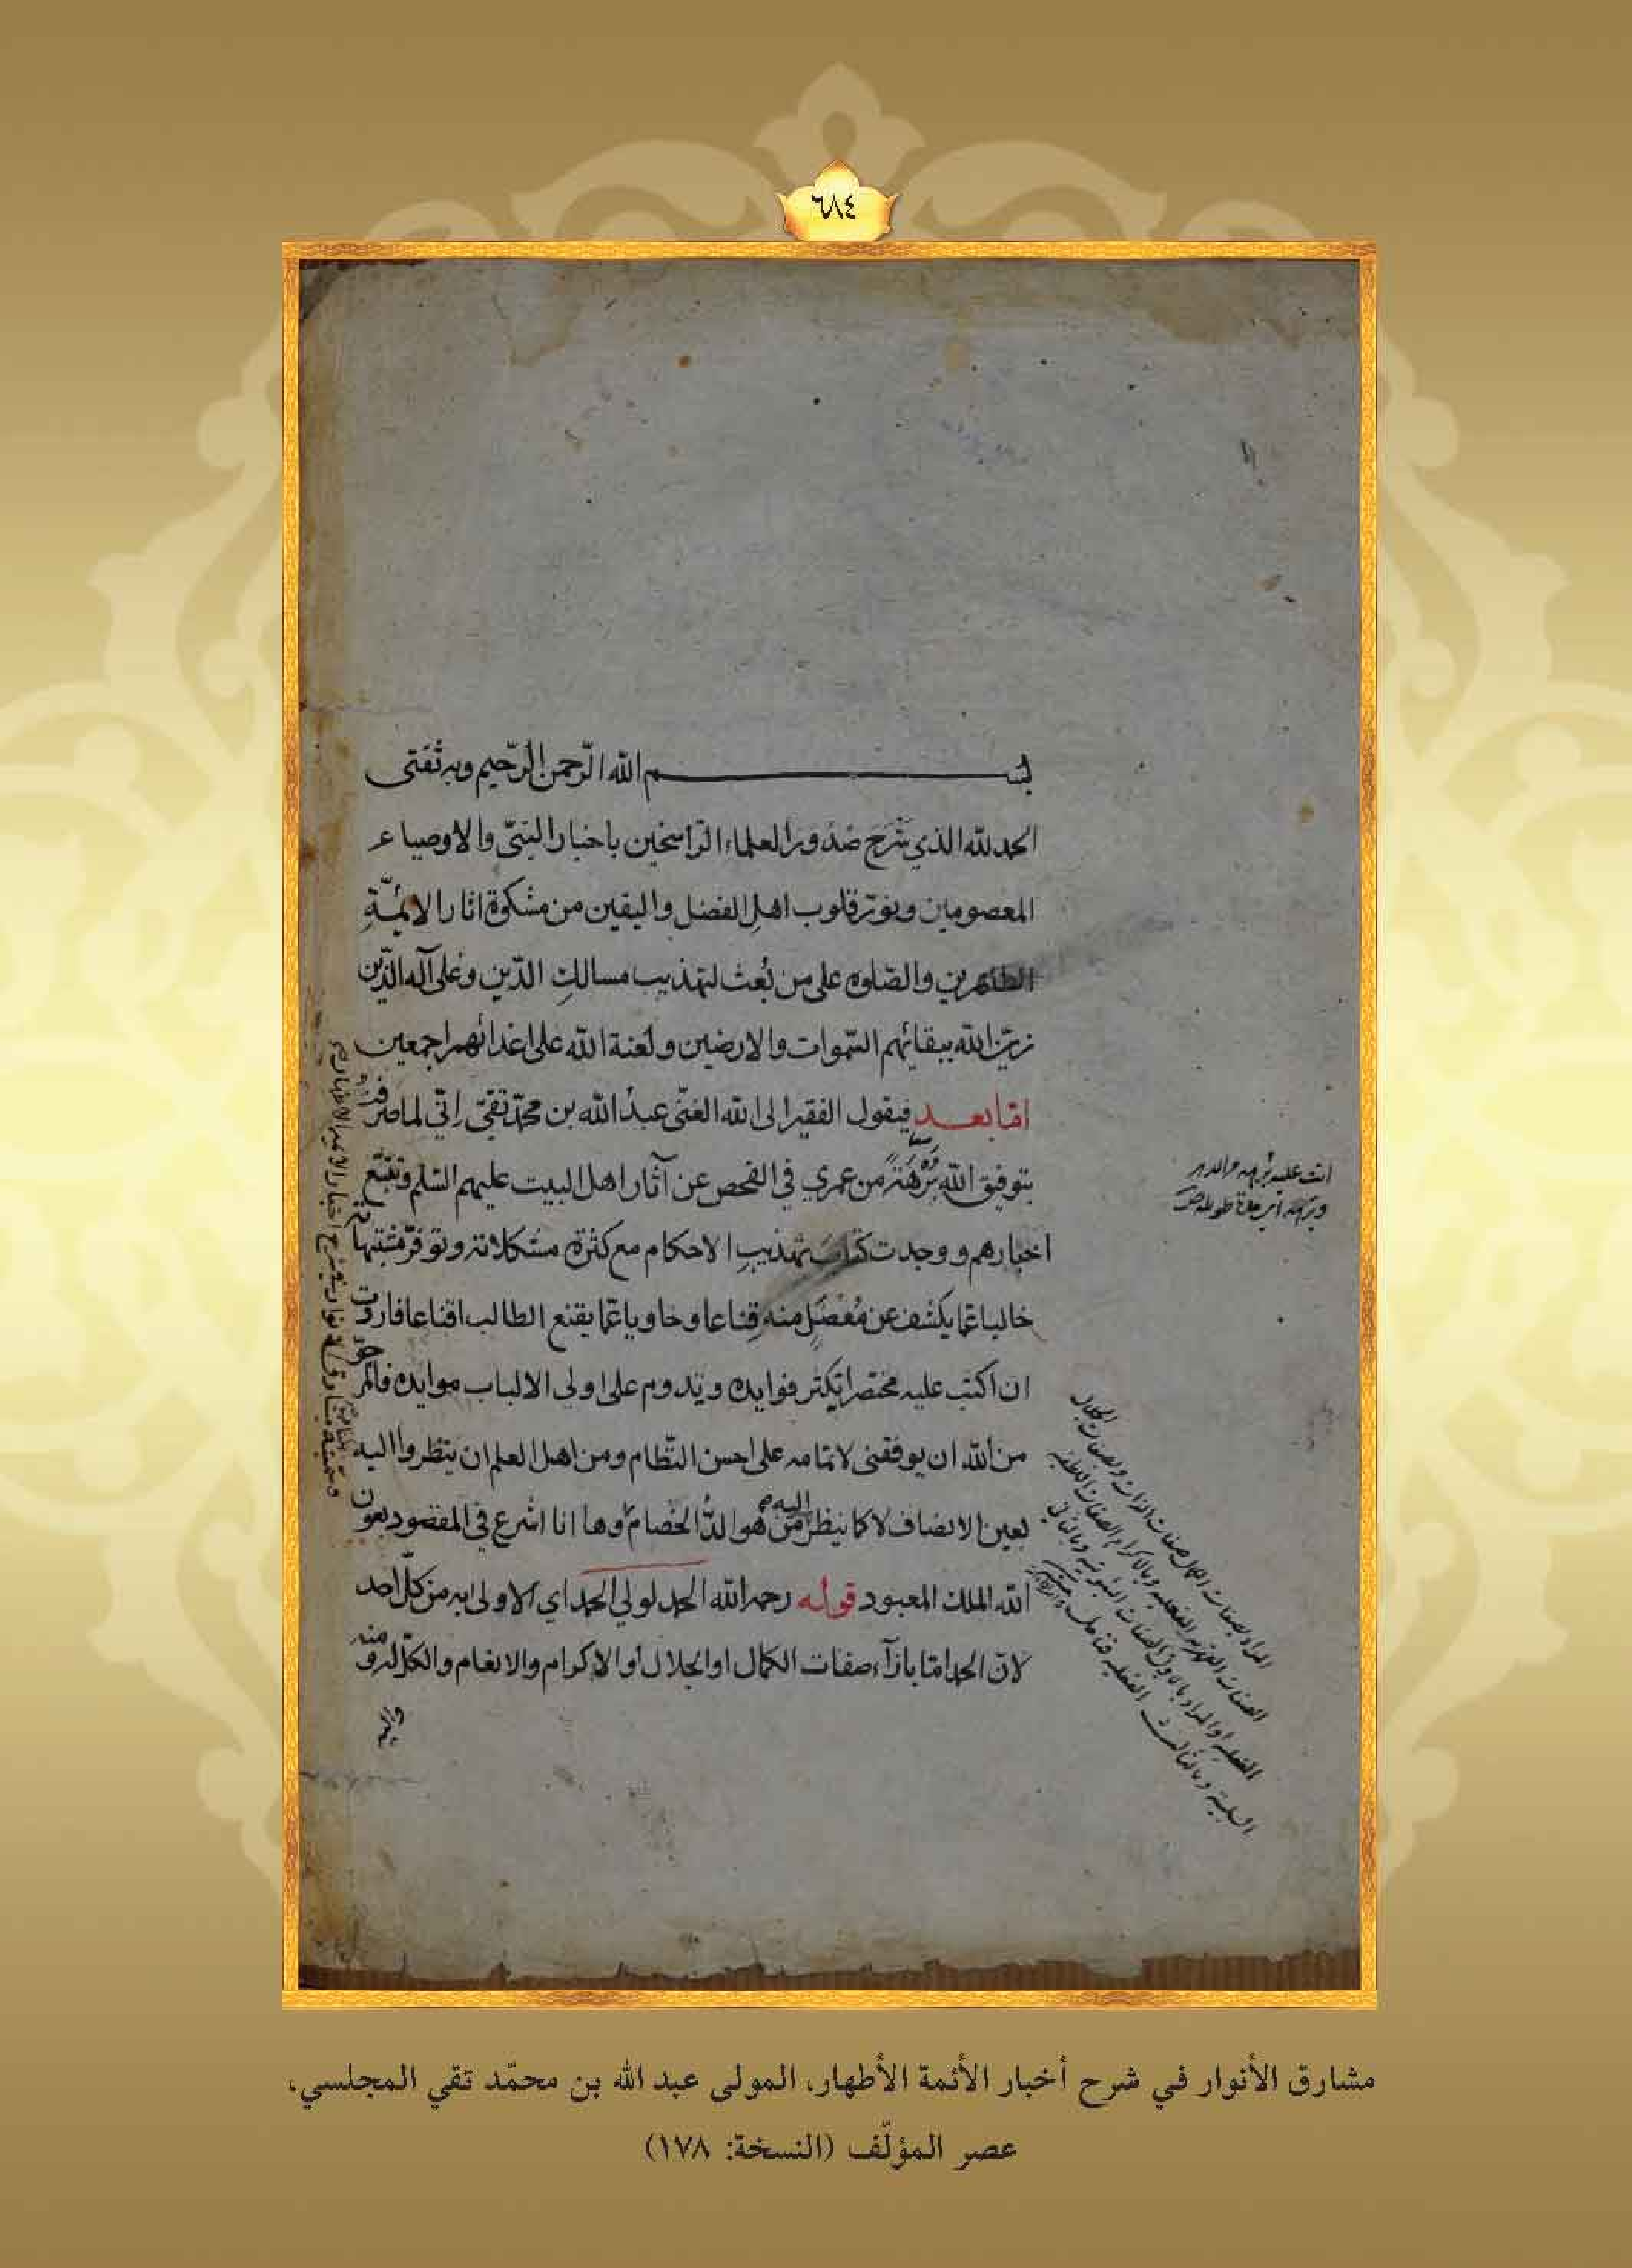 ٦٨٤
بسم الله الرّحمن الرّحيم وبه ثقتى
الحمد لله الذي شرح صدور العلماء الرّاسخين باخبار النبىّ والاوصياء
المعصومين ونوّر قلوب اهل الفضل واليقين من مشكوة اثار الائمّة
الطاهرين والصّلوه على من بُعث لتهذيب مسالك الدّين وعلى آله الذّين
زيّن الله ببقائهم السّموات والارضين ولعنة الله على اعدائهم اجمعين
امّا بعد فيقول الفقير الى الله الغنّى عبدُ الله بن محمّد تقىّ إنّي لما صرفت
بتوفيق الله بُرْهَةً من عمري في الفحص عن آثار اهل البيت عليهم السّلم وتتبّع
اخبارهم ووجدت كتابَ تهذيبِ الاحكام مع كثرة مشكلاته وتوفّر
خاليا عمّا يكشف عن مُعْضَلٍ منه قِناعا وخاويا عمّا يقنع الطالب اقناعا فاردت
ان اكتب عليه مختصرا يكثر فوايده ويدوم على اولى الالباب موايده
من الله ان يوفقنى لاتمامه على احسن النّظام ومن اهل العلم ان ينظروا اليه
بعين الانصاف لا كما ينظر اليه من هو الدُّ الخصام وها انا اشرع في المقصود بعون
الله الملك المعبود قوله رحمه الله الحمد لولي الحمد اي الاولى به من كلّ احد
لانّ الحمد امّا بازآء صفات الكمال او الجلال او الاكرام والانعام والكلّ له ومنه
واليه
وسمّيته مشارق الانوار في شرح اخبار الائمة الاطهار
مشارق الأنوار في شرح أخبار الأئمة الأطهار، المولى عبد الله بن محمّد تقي المجلسي،
عصر المؤلّف (النسخة: ١٧٨)